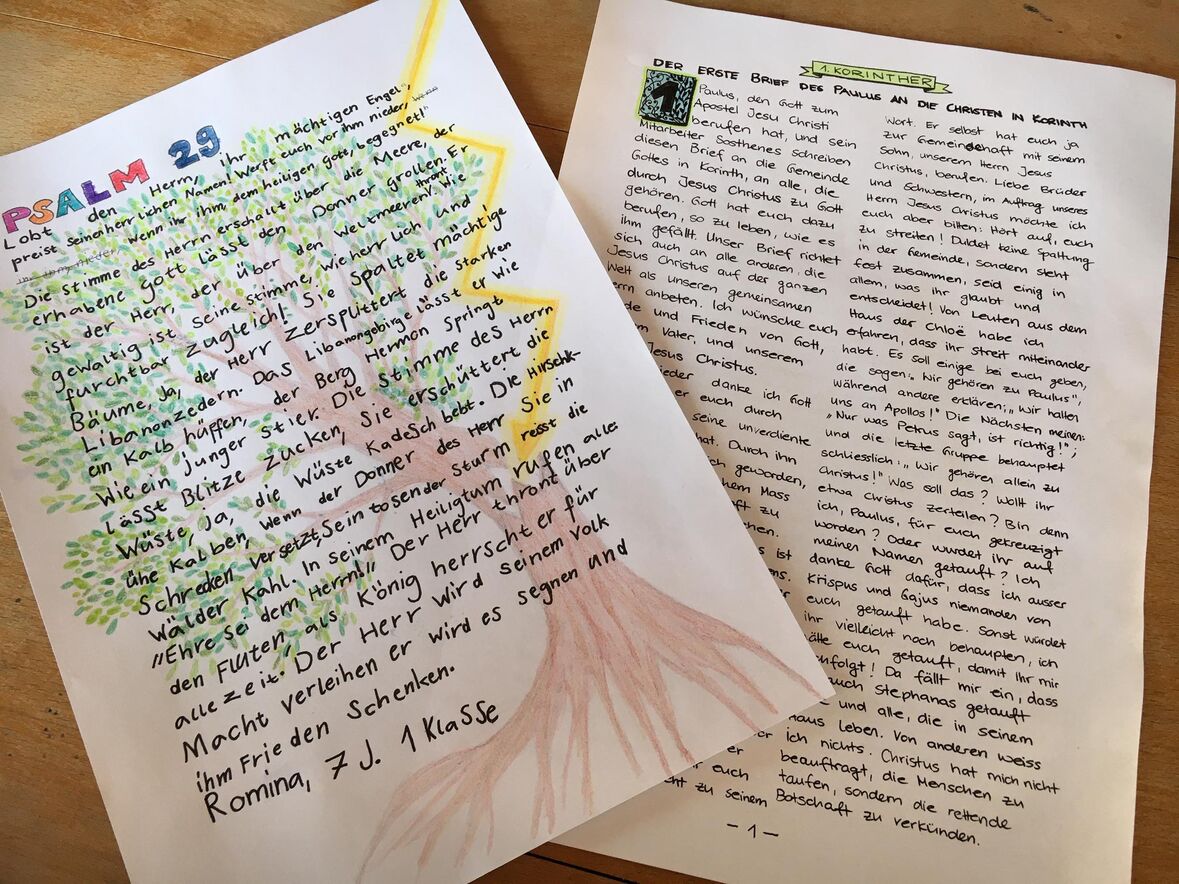 PSALM 29
Lobt den Herrn, ihr mächtigen Engel",
preist Seinen herrlichen Namen! Werft euch vor ihm nieder,
wenn ihr ihm, dem heiligen Gott, begegnet!"
Die Stimme des Herrn erschallt über die Meere, der
erhabene Gott lässt den Donner grollen. Er
ist der Herr, der über den Weltmeeren thront. V. Wie
gewaltig ist seine Stimme, wie herrlich und
furchtbar zugleich! Sie spaltet mächtige
Bäume, Ja, der Herr zersplittert die starken
Libanonzedern. Das Libanongebirge lässt er
ein Kalb hüpfen, der Berg Hermon Springt wie
Wie ein junger Stier. Die Stimme des Herrn
lässt Blitze zucken, Sie erschüttert die
Wüste, ja, die Wüste Kadesch bebt. Die Hirschk-
ühe Kalben, wenn der Donner des Herr Sie in
Schrecken versetzt, Sein tosender Sturm resst die
Wälder Kahl. In seinem Heiligtum rufen alle:
„Ehre sei dem Herrn!" Der Herr thront über
den Fluten, als König herrscht er für
alle zeit. Der Herr wird seinem Volk
Macht verleihen er wird es segnen und
ihm Frieden Schenken.
Romina, 7 J. 1 Klasse
1. KORINTHER
DER ERSTE BRIEF DES PAULUS AN DIE CHRISTEN IN KORINTH
1 Paulus, den Gott zum
Apostel Jesu Christi
berufen hat, und sein
Mitarbeiter Sosthenes schreiben
diesen Brief an die Gemeinde
Gottes in Korinth, an alle, die
durch Jesus Christus zu Gott
gehören. Gott hat euch dazu
berufen, so zu leben, wie es
ihm gefällt. Unser Brief richtet
sich auch an alle anderen, die
Jesus Christus auf der ganzen
Welt als unseren gemeinsamen
anbeten. Ich wünsche euch
und Frieden von Gott,
Vater, und unserem
Jesus Christus.
danke ich Gott
euch durch
seine unverdiente
hat. Durch ihn
geworden,
Mass
zu
ist
Wort. Er selbst hat euch ja
zur Gemeinschaft mit seinem
Sohn, unserem Herrn Jesus
Christus, berufen. Liebe Brüder
und Schwestern, im Auftrag unseres
Herrn Jesus Christus möchte ich
euch aber bitten: Hört auf, euch
zu streiten! Duldet keine Spaltung
in der Gemeinde, sondern steht
fest zusammen, seid einig in
allem, was ihr glaubt und
entscheidet! Von Leuten aus dem
Haus der Chloë habe ich
erfahren, dass ihr streit miteinander
habt. Es soll einige bei euch geben,
die sagen: „Wir gehören zu Paulus",
während andere erklären: „Wir halten
uns an Apollos!" Die Nächsten meinen:
„Nur was Petrus sagt, ist richtig!";
und die letzte Gruppe behauptet
schliesslich: „Wir gehören allein zu
Christus!" Was soll das? Wollt ihr
etwa Christus zerteilen? Bin denn
ich, Paulus, für euch gekreuzigt
worden? Oder wurdet ihr auf
meinen Namen getauft? Ich
danke Gott dafür, dass ich ausser
Krispus und Gajus niemanden von
euch getauft habe. Sonst würdet
ihr vielleicht noch behaupten, ich
euch getauft, damit ihr mir
Da fällt mir ein, dass
auch Stephanas getauft
und alle, die in seinem
Haus leben. Von anderen weiss
ich nichts. Christus hat mich nicht
beauftragt, die Menschen zu
taufen, sondern die rettende
Botschaft zu verkünden.
euch
zu seinem
- 1 -